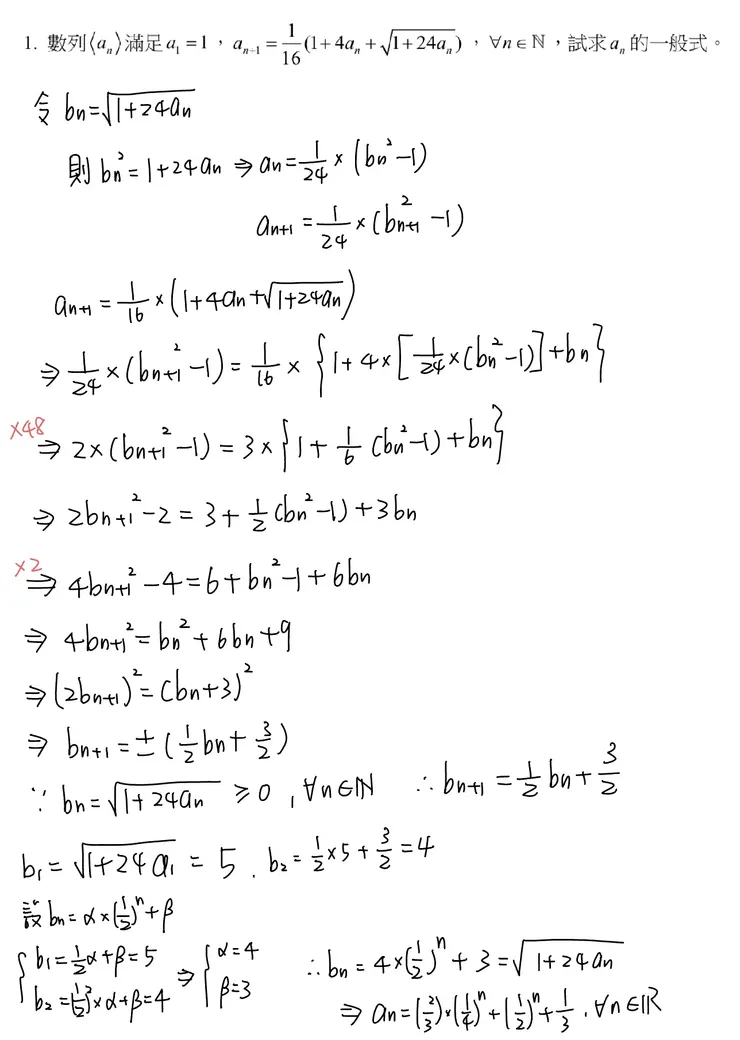 1. 數列⟨aₙ⟩滿足 a₁ = 1，aₙ₊₁ = 1/16(1+4aₙ+√(1+24aₙ))，∀n∈ℕ，試求 aₙ 的一般式。
令 bn=√(1+24an)
則 bn²=1+24an ⇒ an=1/24×(bn²-1)
an+1=1/24×(bn+1²-1)
an+1=1/16×(1+4an+√(1+24an))
⇒ 1/24×(bn+1²-1)=1/16×{1+4×[1/24×(bn²-1)]+bn}
×48 ⇒ 2×(bn+1²-1)=3×{1+1/6(bn²-1)+bn}
⇒ 2bn+1²-2=3+1/2(bn²-1)+3bn
×2 ⇒ 4bn+1²-4=6+bn²-1+6bn
⇒ 4bn+1²=bn²+6bn+9
⇒ (2bn+1)²=(bn+3)²
⇒ bn+1=±(1/2bn+3/2)
∵ bn=√(1+24an) ≥0, ∀n∈ℕ ∴ bn+1=1/2bn+3/2
b1=√(1+24a1)=5. b2=1/2×5+3/2=4
設 bn=α×(1/2)ⁿ+β
{b1=1/2α+β=5 ⇒ {α=4 ∴ bn=4×(1/2)ⁿ+3=√(1+24an)
b2=(1/2)²×α+β=4 β=3 ⇒ an=(2/3)×(1/4)ⁿ+(1/2)ⁿ+1/3, ∀n∈ℝ